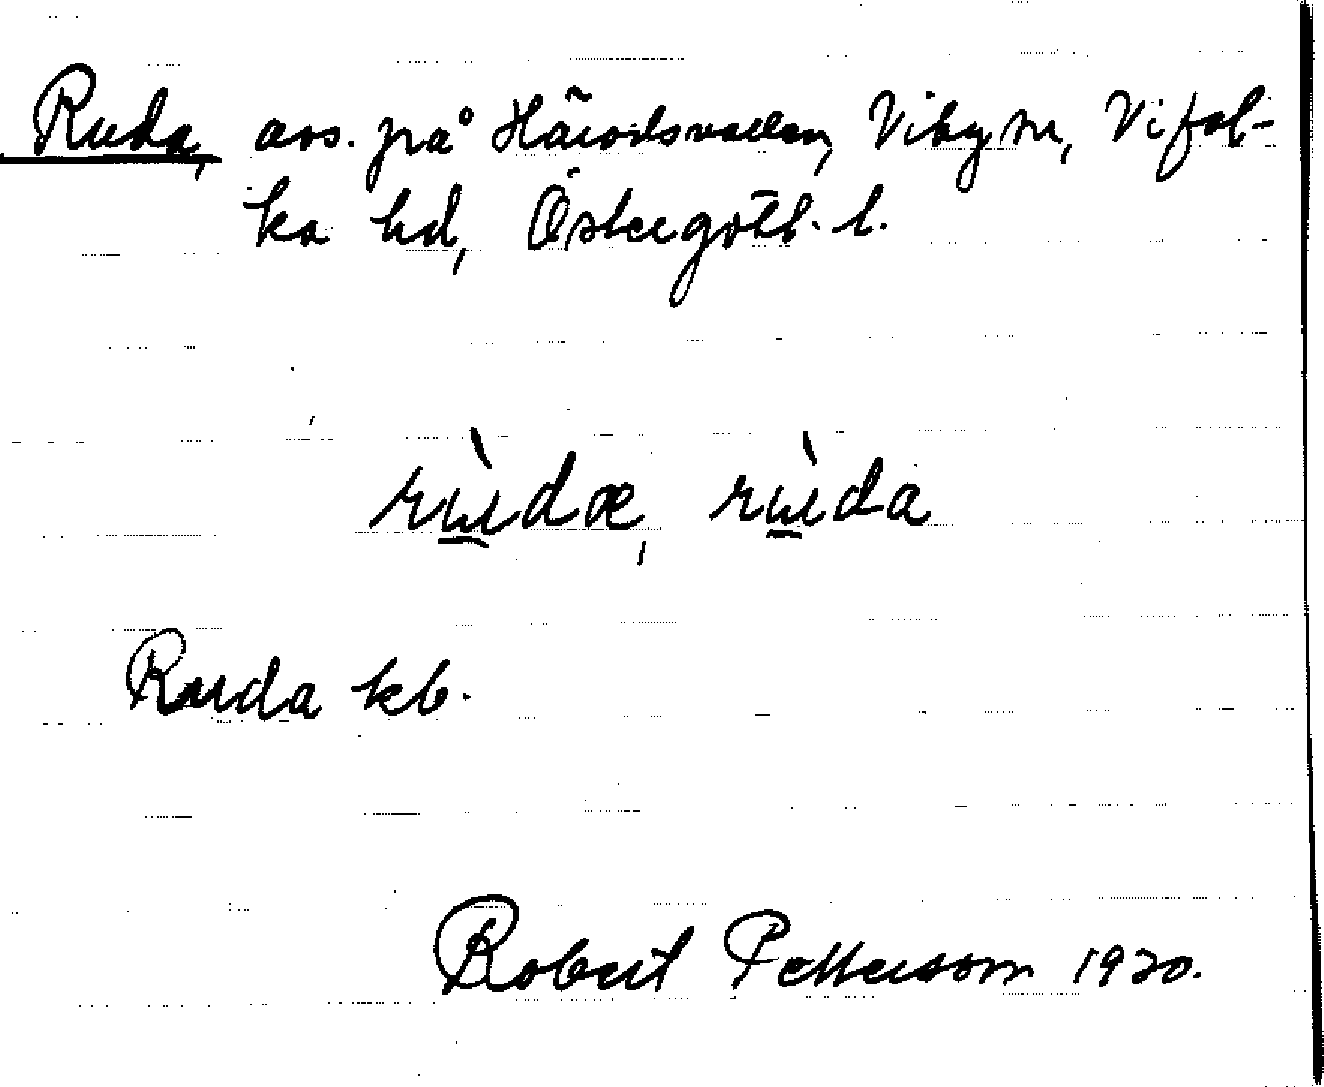 Ruda, avs. på Häradsvallen, Viby sn, Vifol-
ka hd, Östergötl. l.
rùdæ, rùda
Ruda kb.
Robert Pettersson 1920.